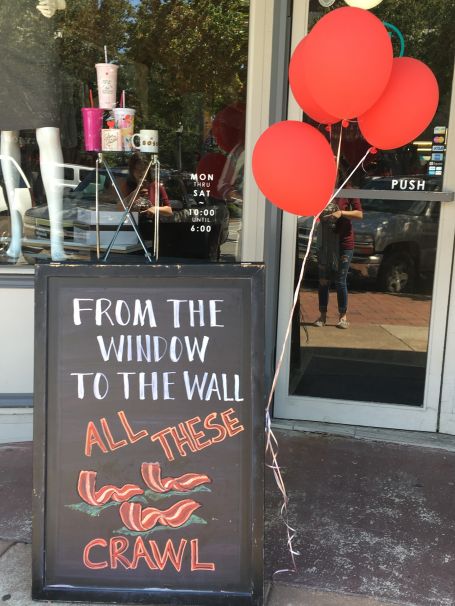 MON
THRU
SAT
10:00
UNTIL
6:00
PUSH
FROM THE
WINDOW
TO THE WALL
ALL THESE
CRAWL